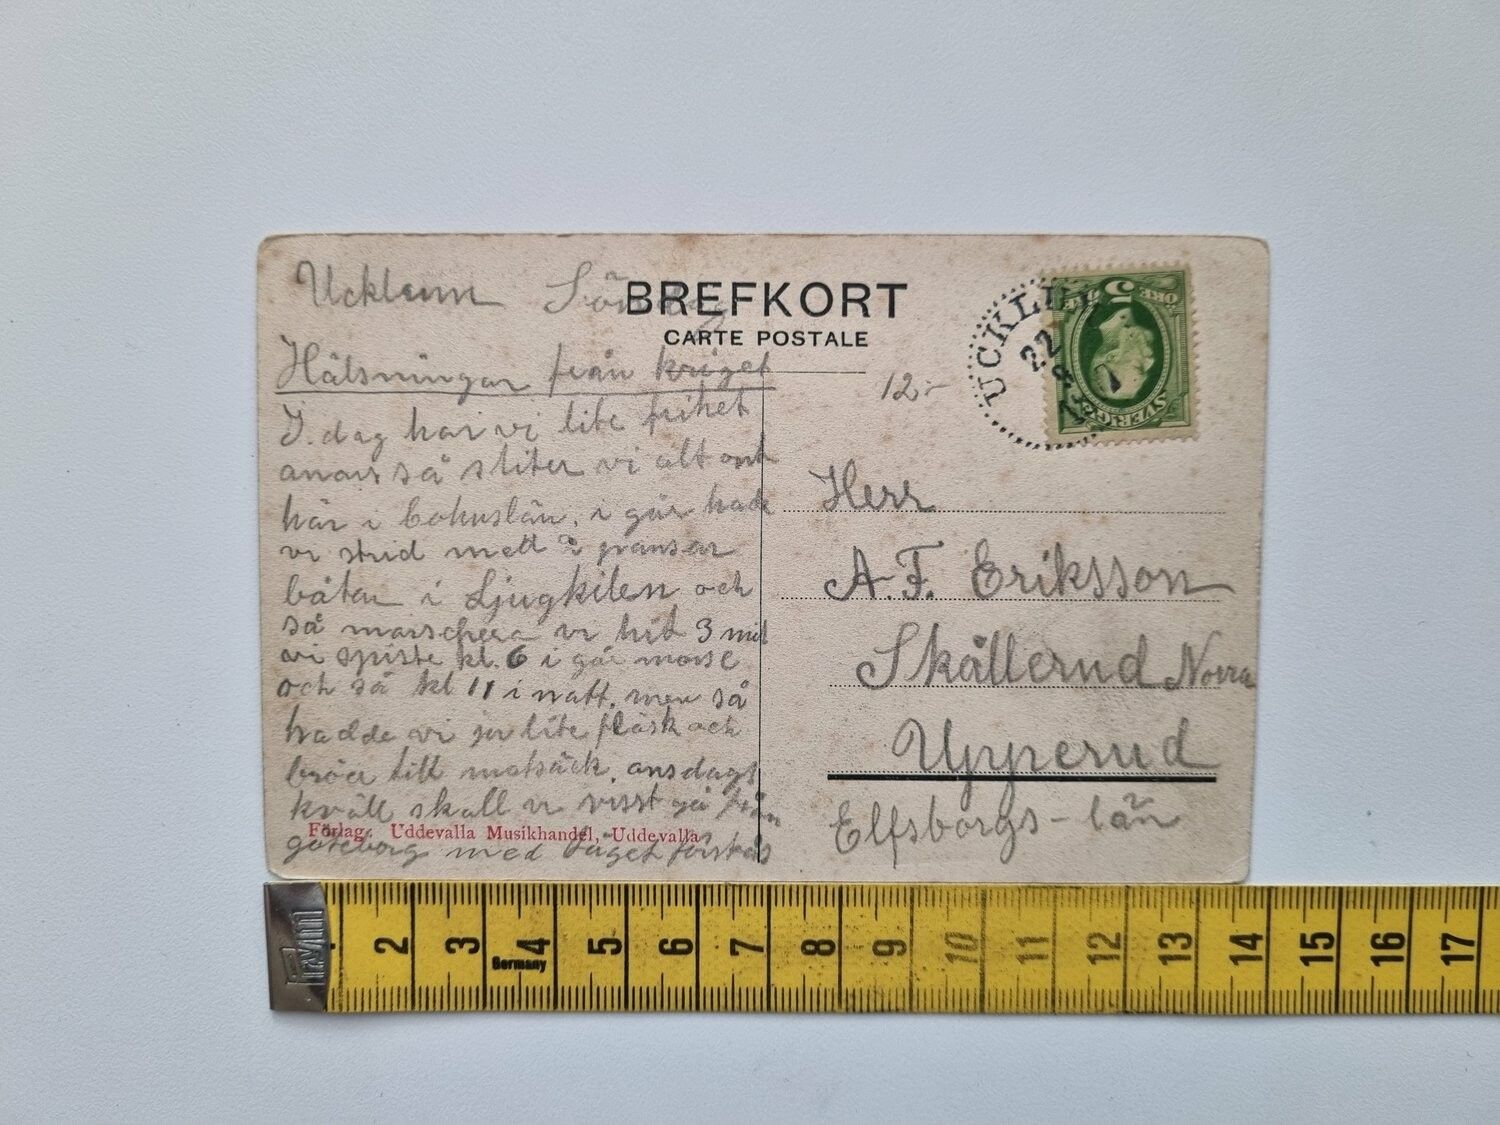 Ucklum Söndag
BREFKORT
CARTE POSTALE
Hälsningar från kriget
I dag har vi lite frihet
anars så sliter vi alt ont
här i bohuslän, i går hade
vi strid mett 2 pansar
båtar i Ljugkilen och
så marschera vi hit 3 mil
vi spiste kl. 6 i går morse
och så kl 11 i natt. men så
hadde vi ju lite fläsk och
bröd till matsäck. onsdags
kväll skall vi visst gå från
göteborg med tåget förstås
Förlag: Uddevalla Musikhandel, Uddevalla
12:-
UCKLUM
22
SVERIGE
5
ÖRE
Herr
A. F. Eriksson
Skållerud Norra
Upperud
Elfsborgs-län
2 3 4 5 6 7 8 9 10 11 12 13 14 15 16 17
Germany